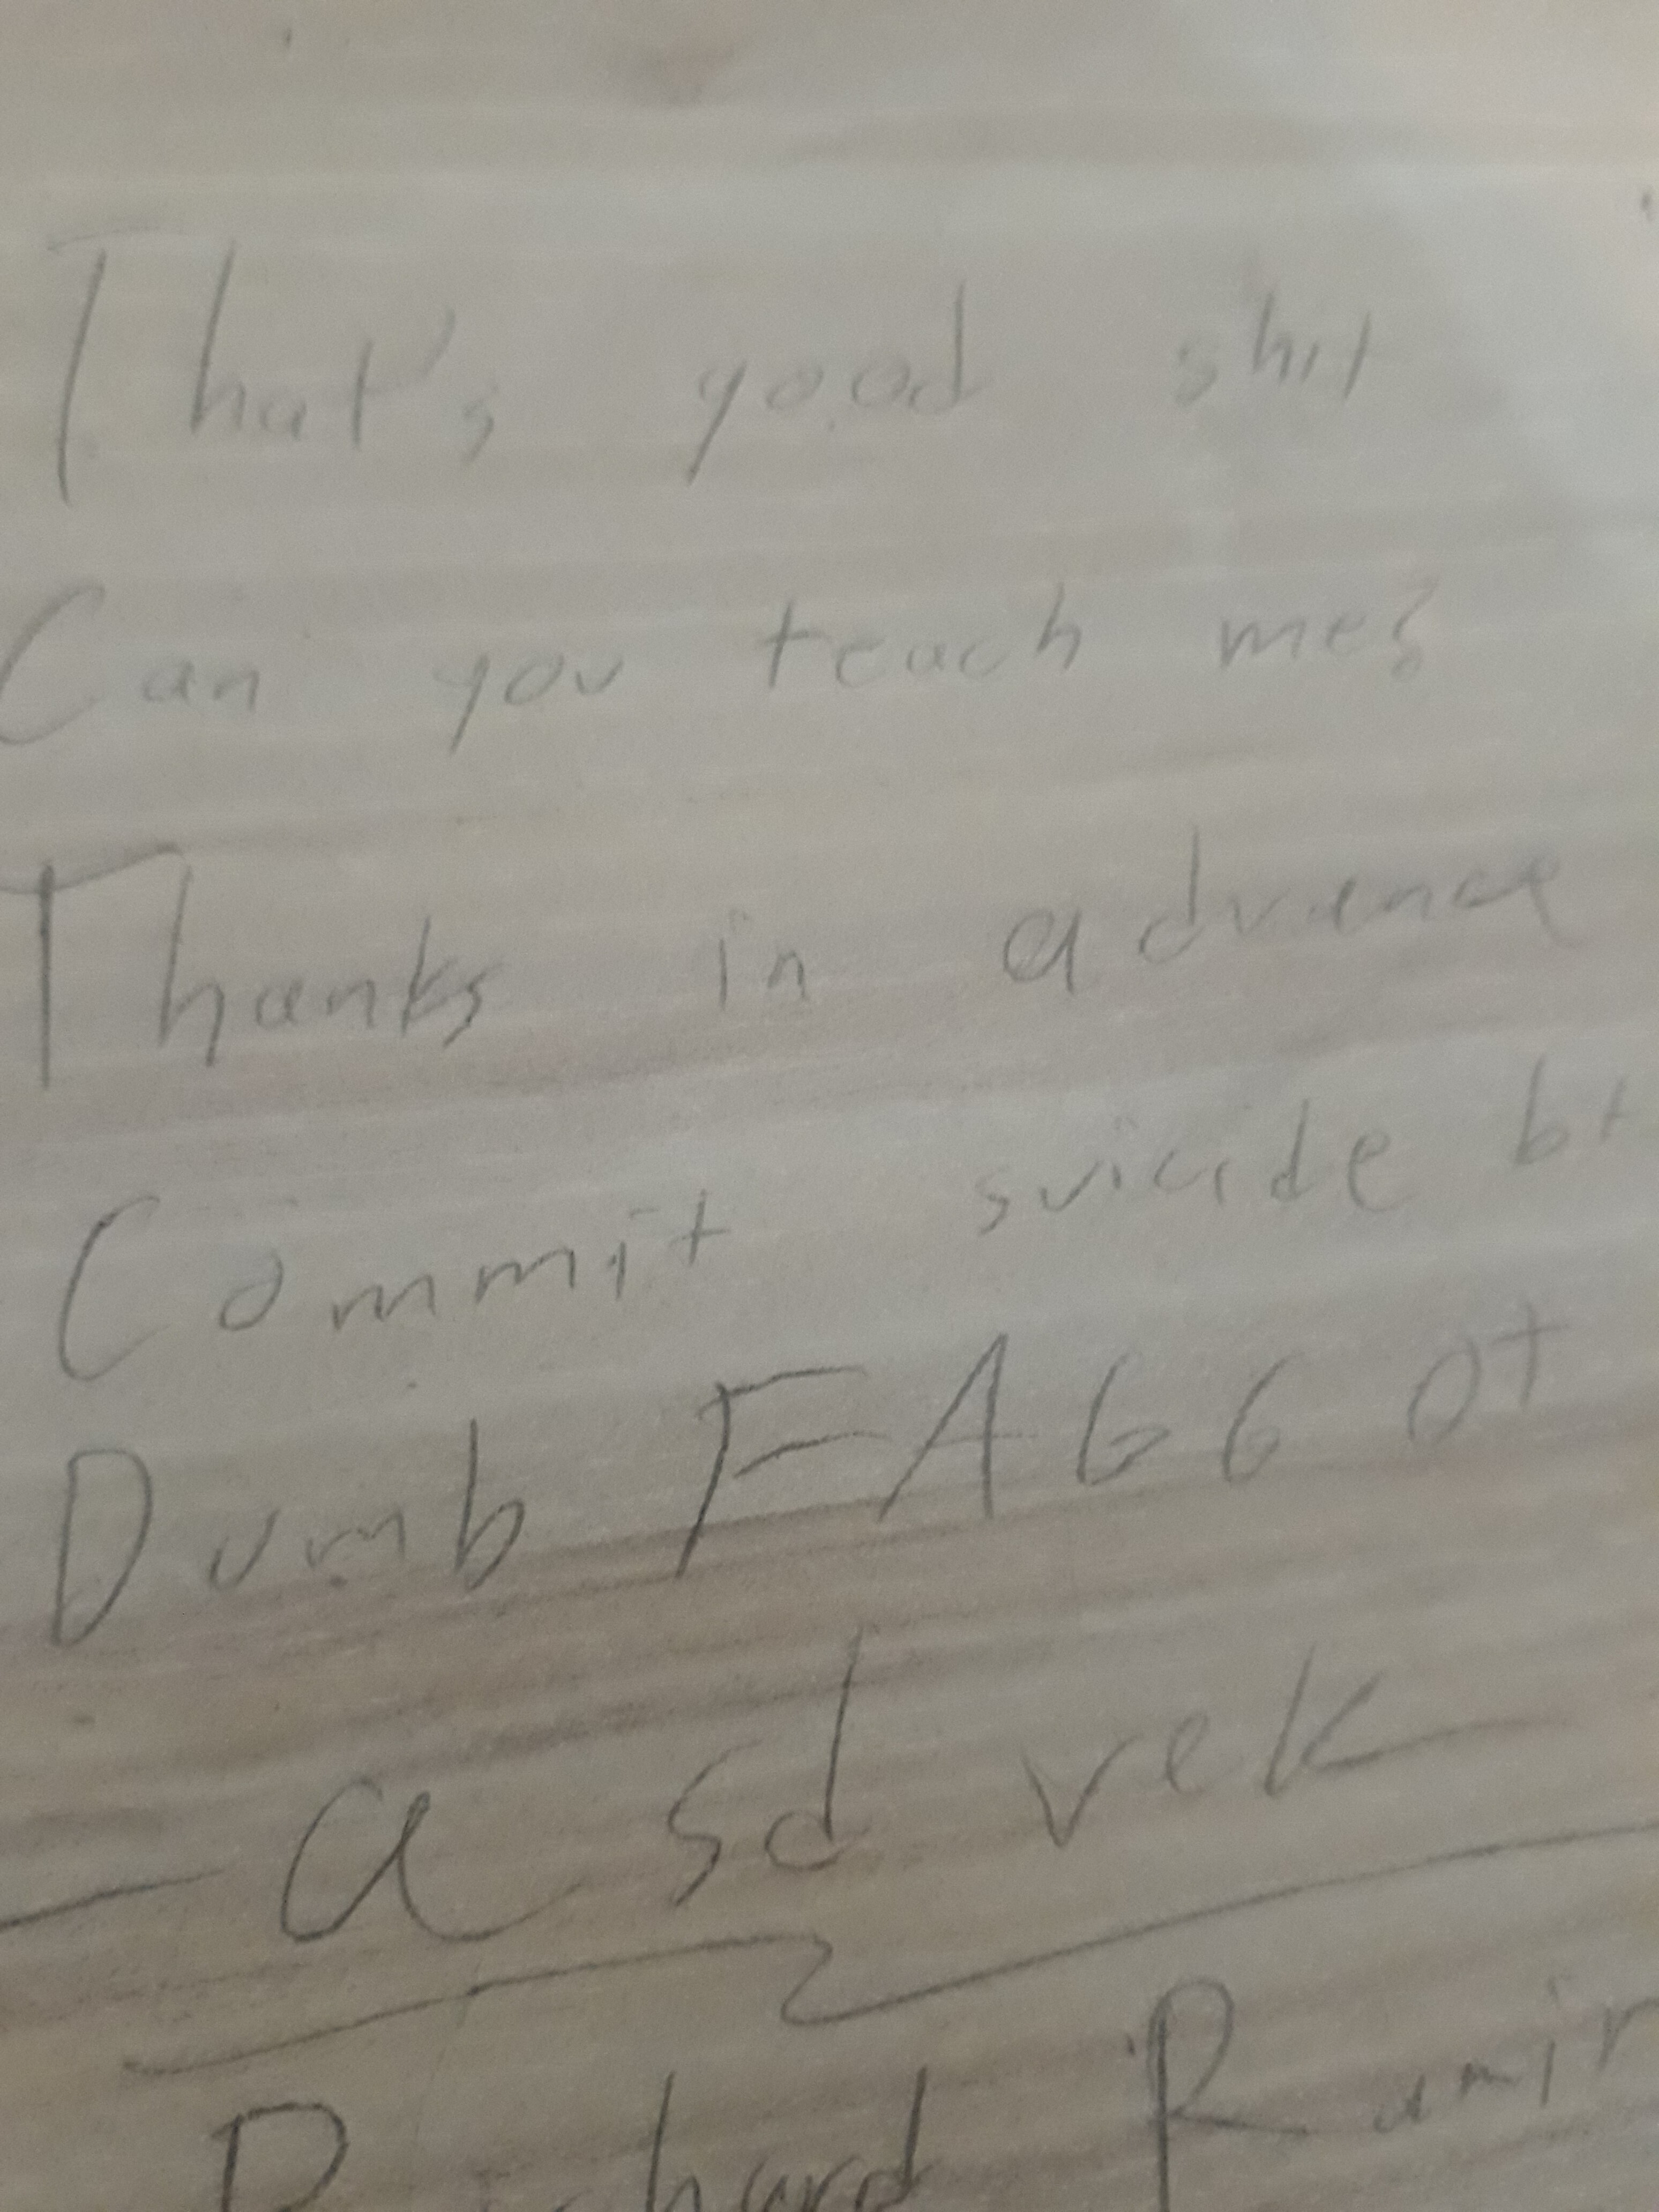 That's good shit
Can you teach me?
Thanks in advance
Commit suicide
Dumb FAGGOt
- asd vek
Richard